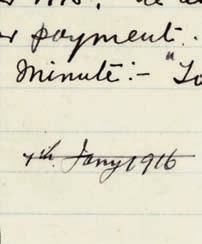 payment.
Minute:- "To
4th. Jany 1916